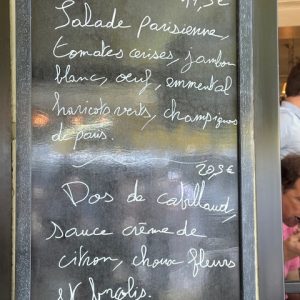 Salade parisienne,
tomates cerises, jambon
blanc, oeuf, emmental
haricots verts, champignons
de paris.
20,5€
Dos de cabillaud,
sauce crème de
citron, choux fleurs
et brocolis.